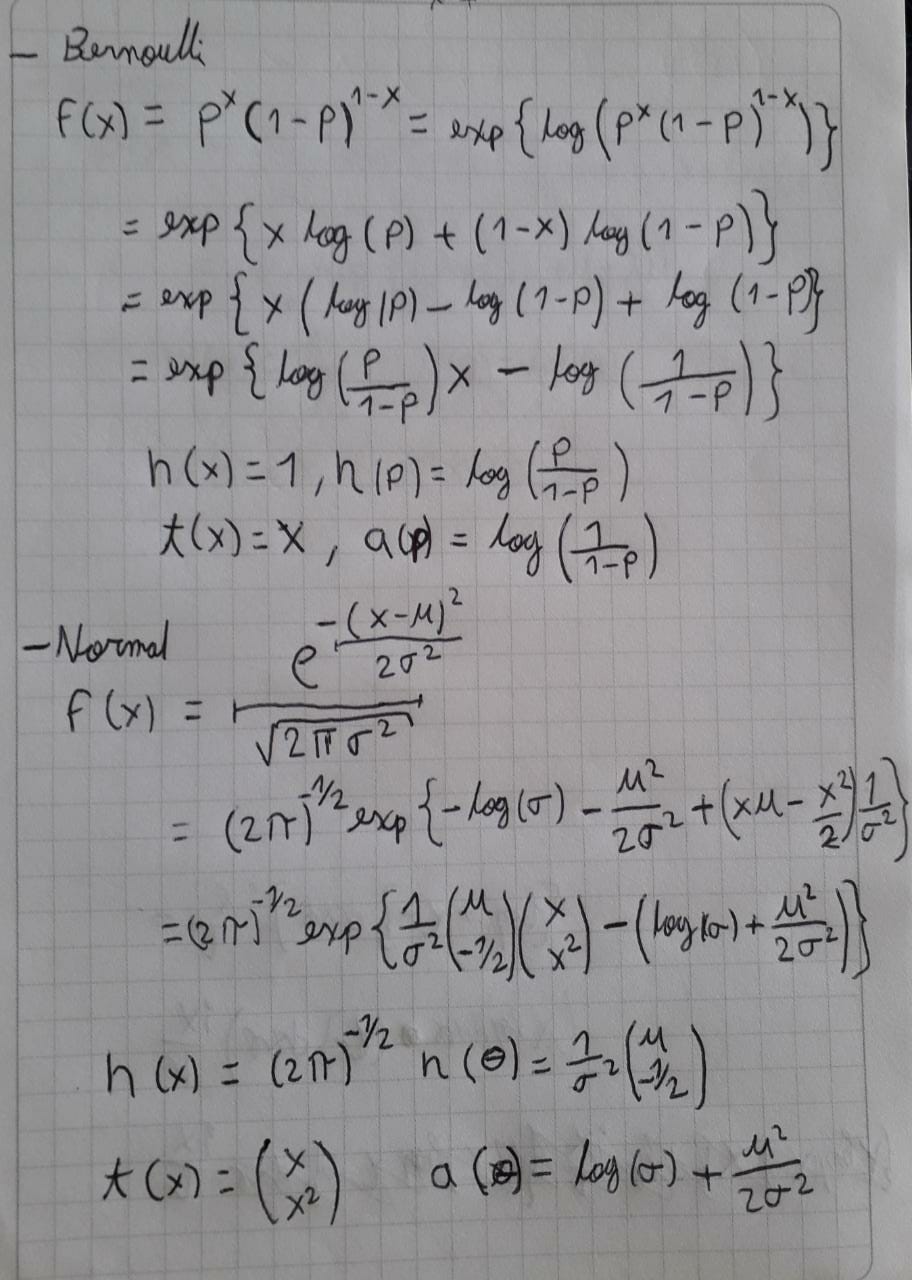 - Bernoulli
f(x) = p^x (1-p)^{1-x} = exp{log(p^x (1-p)^{1-x})}
= exp{x log(p) + (1-x) log(1-p)}
= exp{x(log(p) - log(1-p) + log(1-p)}
= exp{log(p/(1-p))x - log(1/(1-p))}
h(x) = 1, η(p) = log(p/(1-p))
t(x) = x, a(p) = log(1/(1-p))
- Normal
f(x) = e^{-(x-μ)^2/(2σ^2)} / √(2πσ^2)
= (2π)^{-1/2} exp{-log(σ) - μ^2/(2σ^2) + (xμ - x^2/2) 1/σ^2}
= (2π)^{-1/2} exp{1/σ^2 (μ, -1/2)(x, x^2) - (log(σ) + μ^2/(2σ^2))}
h(x) = (2π)^{-1/2} η(θ) = 1/σ^2 (μ, -1/2)
t(x) = (x, x^2) a(θ) = log(σ) + μ^2/(2σ^2)